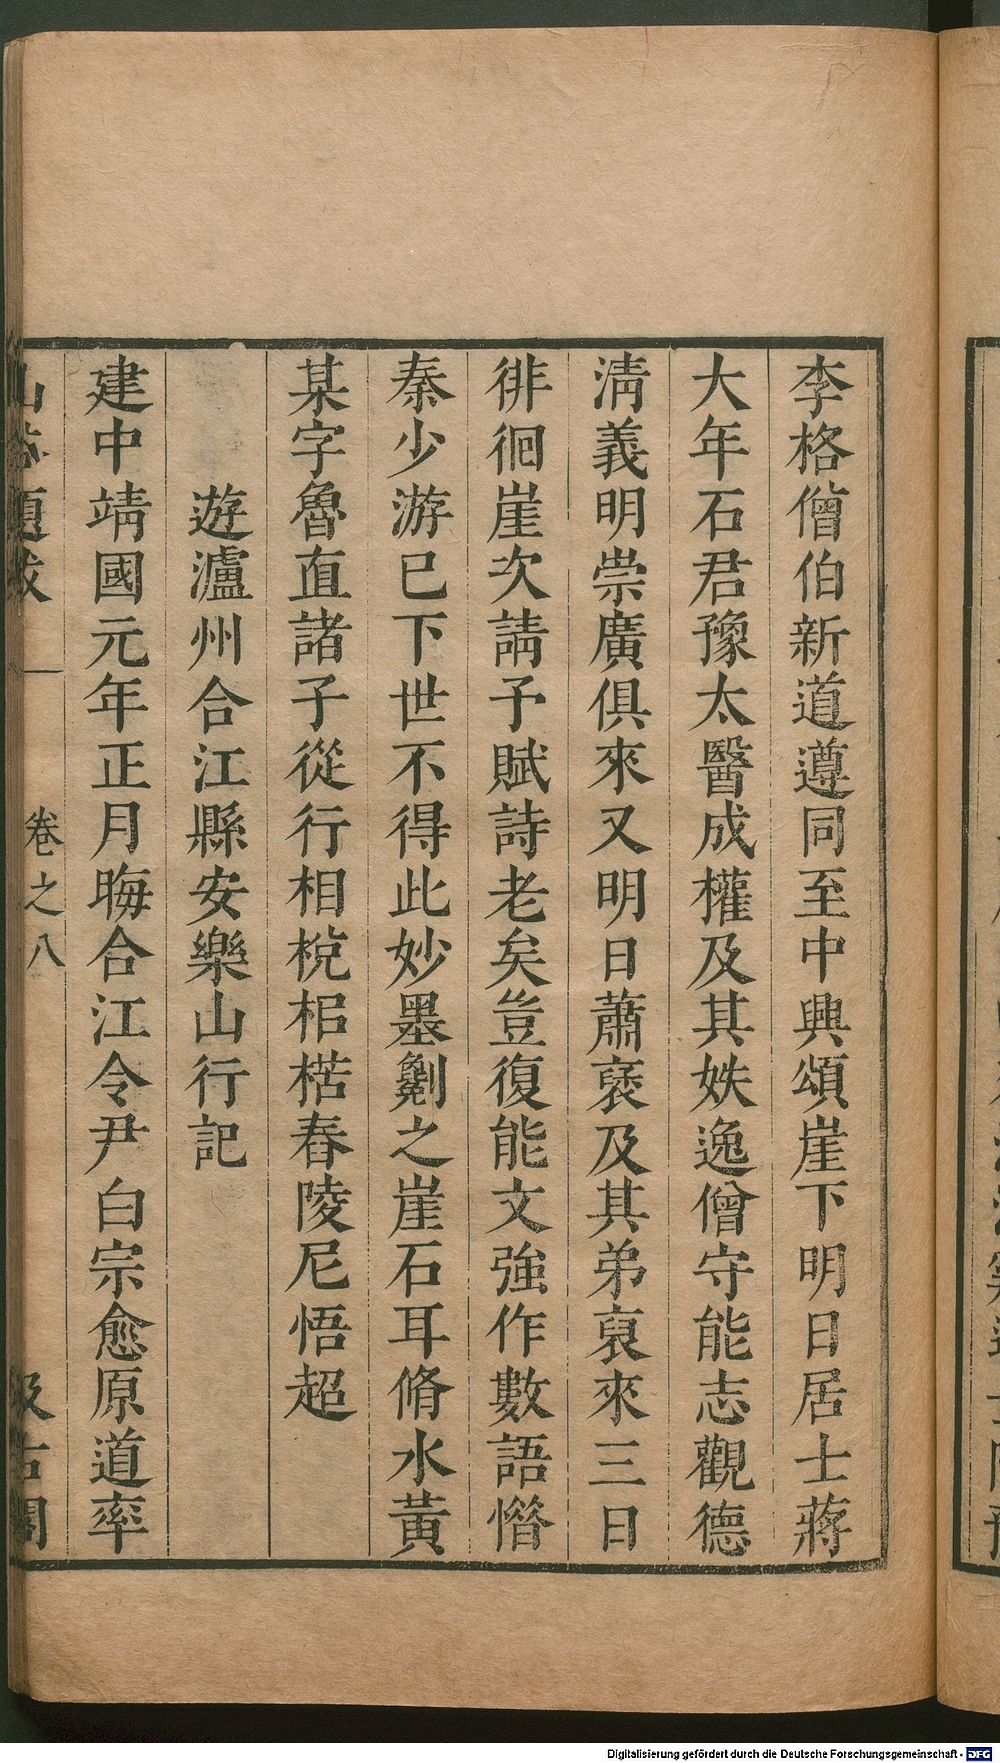 李格僧伯新道遵同至中興頌崖下明日居士蔣
大年石君豫太醫成權及其姪逸僧守能志觀德
清義明崇廣俱來又明日蕭襃及其弟裒來三日
徘徊崖次請予賦詩老矣豈復能文強作數語惜
秦少游已下世不得此妙墨劖之崖石耳脩水黃
某字魯直諸子從行相梲梠楛舂陵尼悟超
遊瀘州合江縣安樂山行記
建中靖國元年正月晦合江令尹白宗愈原道率
題跋 一 卷之八 汲古閣
Digitalisierung gefördert durch die Deutsche Forschungsgemeinschaft - DFG